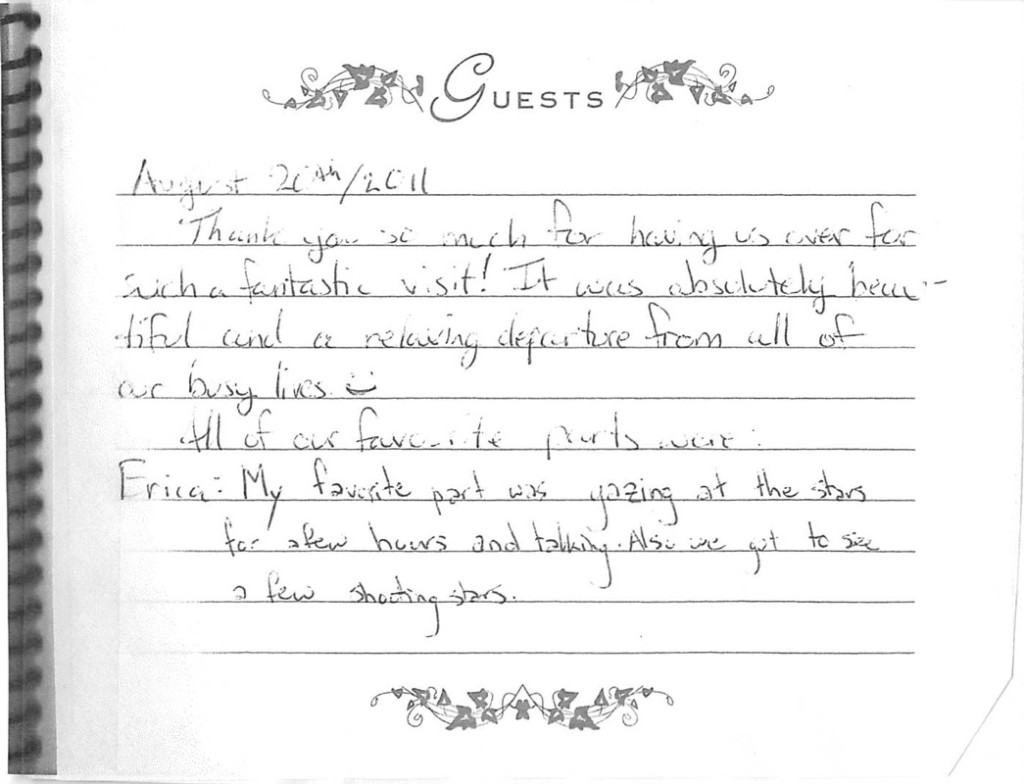 GUESTS
August 20th/2011
Thank you so much for having us over for
such a fantastic visit! It was absolutely beau-
tiful and a relaxing departure from all of
our busy lives. :)
All of our favourite parts were:
Erica: My favorite part was gazing at the stars
for a few hours and talking. Also we got to see
a few shooting stars.